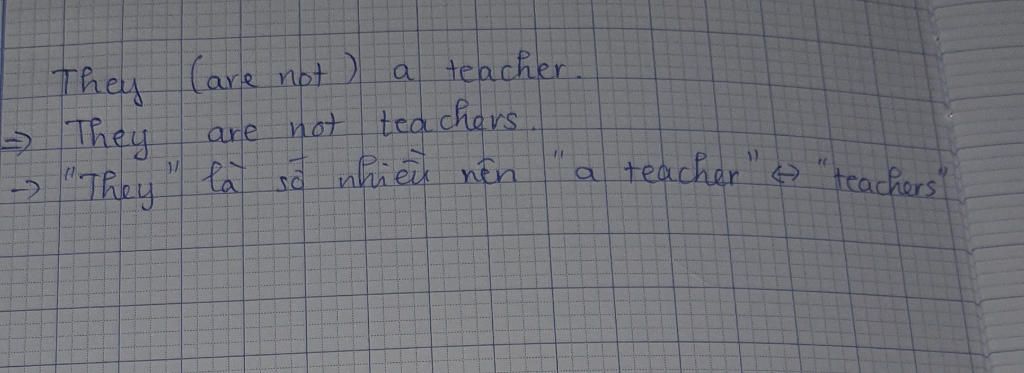 They (are not) a teacher.
=> They are not teachers.
-> "They" là số nhiều nên "a teacher" <-> "teachers"